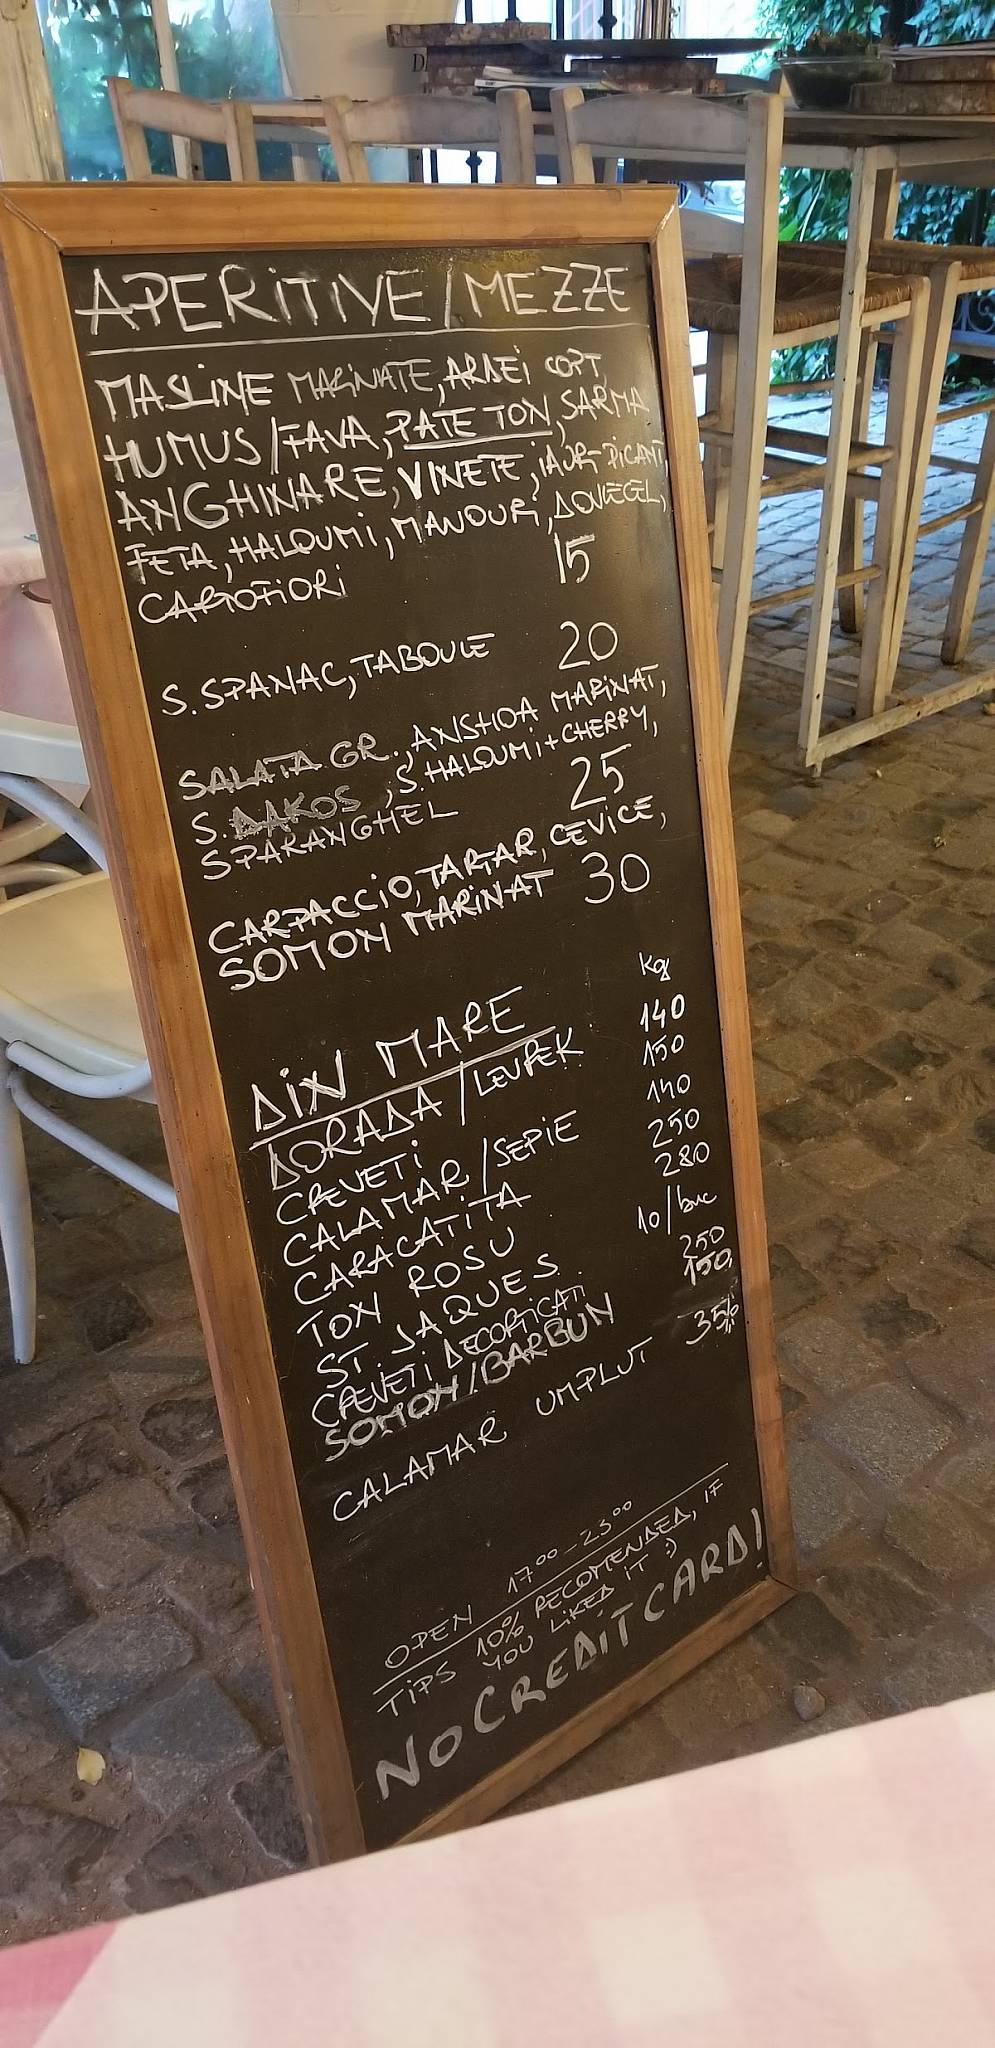 APERITIVE/MEZZE
MASLINE MARINATE, ARDEI COPT,
HUMUS/FAVA, PATE TON, SARMA
ANGHINARE, VINETE, IAURT-PICANT,
FETA, HALOUMI, MANOURI, DOVLECEL,
CARTOFIORI 15
S. SPANAC, TABOULE 20
SALATA GR., ANSHOA MARINAT,
S. DAKOS, S. HALOUMI+CHERRY,
SPARANGHEL 25
CARPACCIO, TARTAR, CEVICE,
SOMON MARINAT 30
DIN MARE Kg
DORADA/LEVREK 140
CREVETI 150
CALAMAR/SEPIE 140
CARACATITA 250
TON ROSU 280
ST. JAQUES 10/buc
CREVETI DECORTICATI 250
SOMON/BARBUN 150
CALAMAR UMPLUT 35
OPEN 17⁰⁰-23⁰⁰
TIPS 10% RECOMENDED, IF
YOU LIKED IT :)
NO CREDIT CARD!